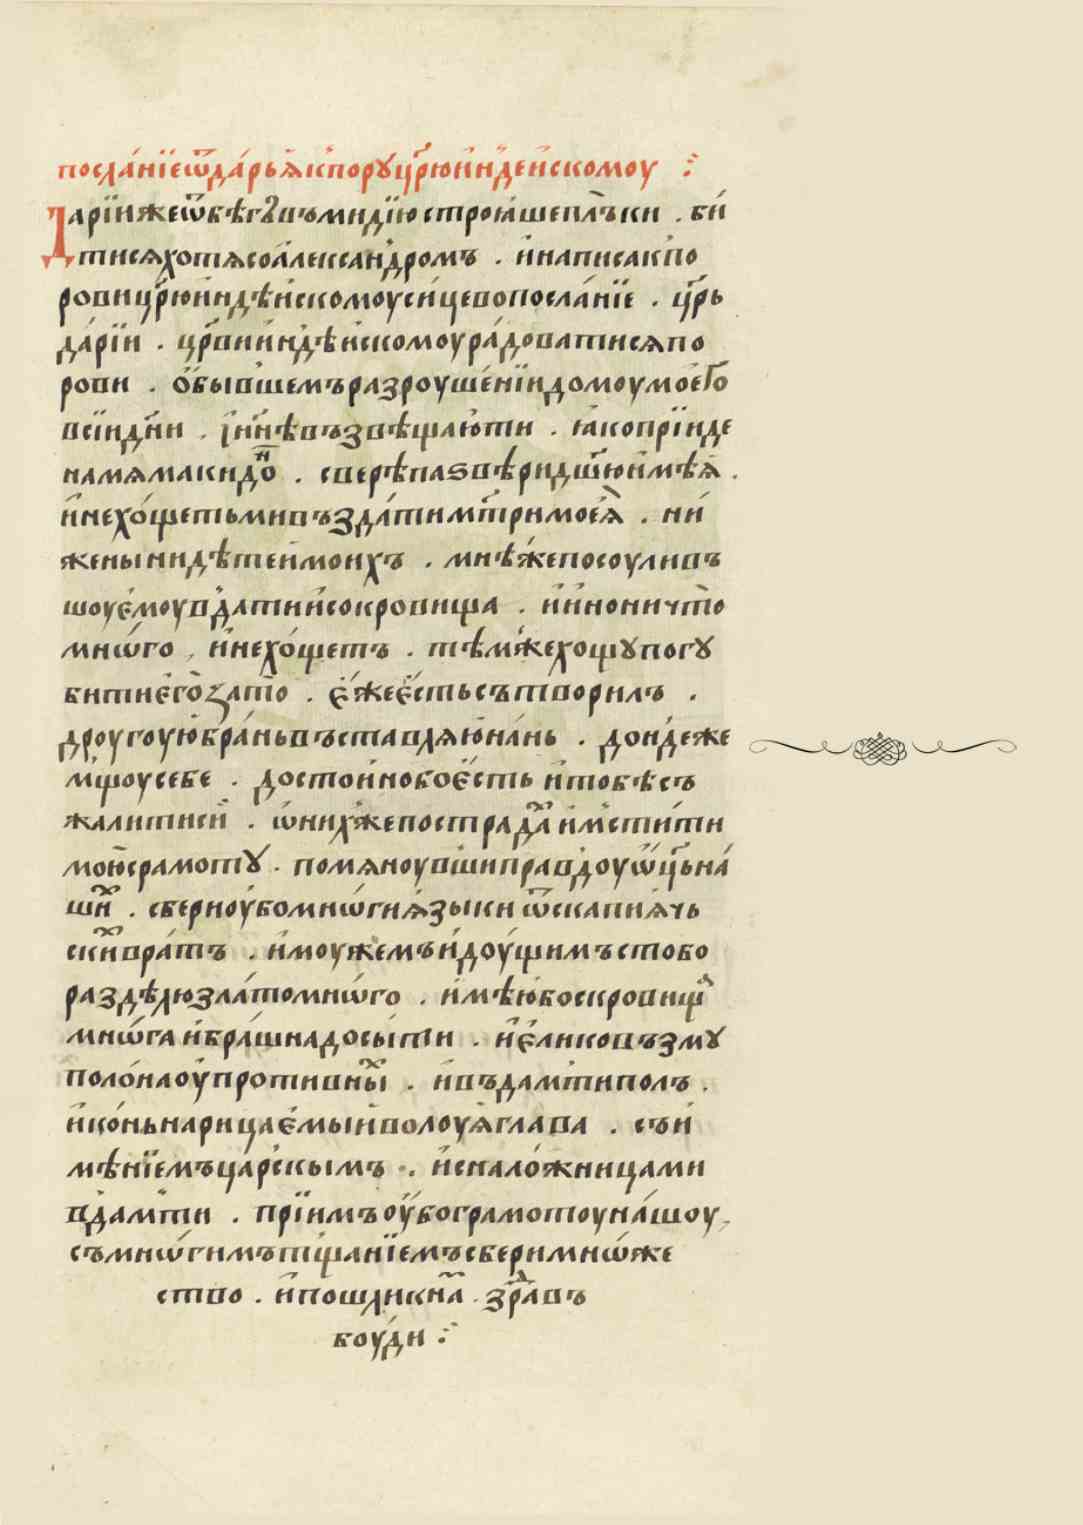 посла́нїе ѿ да́рьѧ̀ к пору́ цр҃ю и҆нде́искомоу ⁘
Дарїи же ѿбѣгъ въ мидїю строꙗ́ше плъ̀ки . би́
тисѧ хотѧ со а҆леѯандромъ . и҆ написа к по
рови цр҃ю и҆ндѣ́искомоу си́цево посла́нїе . цр҃ь
да́рїи . цр҃ви и҆ндѣ́искомоу ра́доватисѧ по
рови . ѻ҆ бывшемъ разроуше́нїи домоу моего̀
в сїи дн҃и . і҆ нн҃ѣ възвѣщаю ти . ꙗ҆ко прїиде
на мѧ макидо́н . сверѣпа ѕвѣри дш҃ю и҆мѣѧ̀ .
и҆ не хо́щеть ми възда́ти мт҃ри моеѧ̀ . ни́
жены ни дѣтеи мои́хъ . мнѣ́ же посоуливъ
шоу є҆моу вдати и҆ сокровища . и҆ и҆но ничто̀
мнѡ́го , и҆ не хо́щетъ . тѣм же хощꙋ погꙋ
бити є҆го̀ за то̀ . є҆же є҆сть сътворилъ .
дроугоую бра́нь въставлѧю на́нь . до́ндеже
мщоу себе . досто́ино бо є҆сть и҆ тобѣ съ
жалитиси . ѡ҆ ни́хже пострада́х и҆ мстити
мою̀ срамотꙋ . помѧноувши правдоу ѿц҃ь на́
ших . сбери оу҆́бо мнѡ́ги ѧ҆зыки ѿ скапиѧ́чь
ских вра́тъ . и҆ моужемъ и҆доу́щимъ с тобо
раздѣлю зла́то мнѡ́го . и҆мѣ́ю бо скровищ̾а
мнѡ́га и҆ бра́шна досы́ти . и҆ є҆лико възмꙋ
поло́на оу҆ противны́х . и҆ въдам ти полъ .
и҆ ко́нь нарицає́мыи волоуѧ̀ глава . съ и҆
мѣ́нїемъ царскымъ . и҆ с нало́жницами
вдам ти . прїимъ оу҆́бо грамотоу на́шоу ,
съ мнѡ́гимъ тща́нїемъ сбери мнѡ́же
ство . и҆ пошли к на́м . здра́въ
боуди ⁘